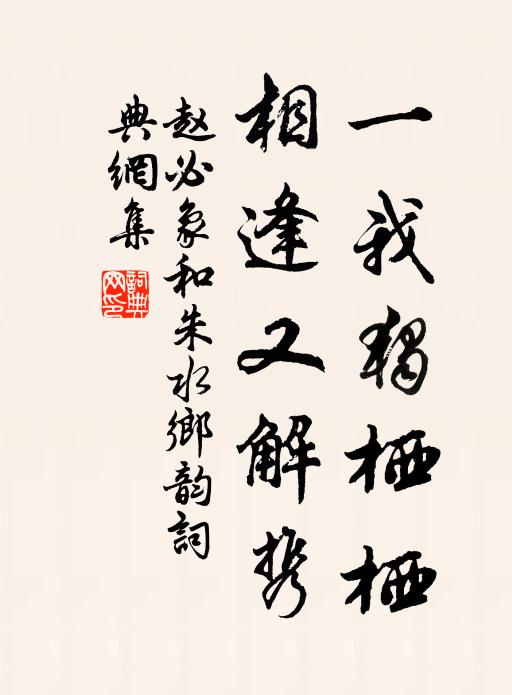 一我独栖栖
相逢又解携
赵必象和朱水乡韵词
典网集
詞典
网印